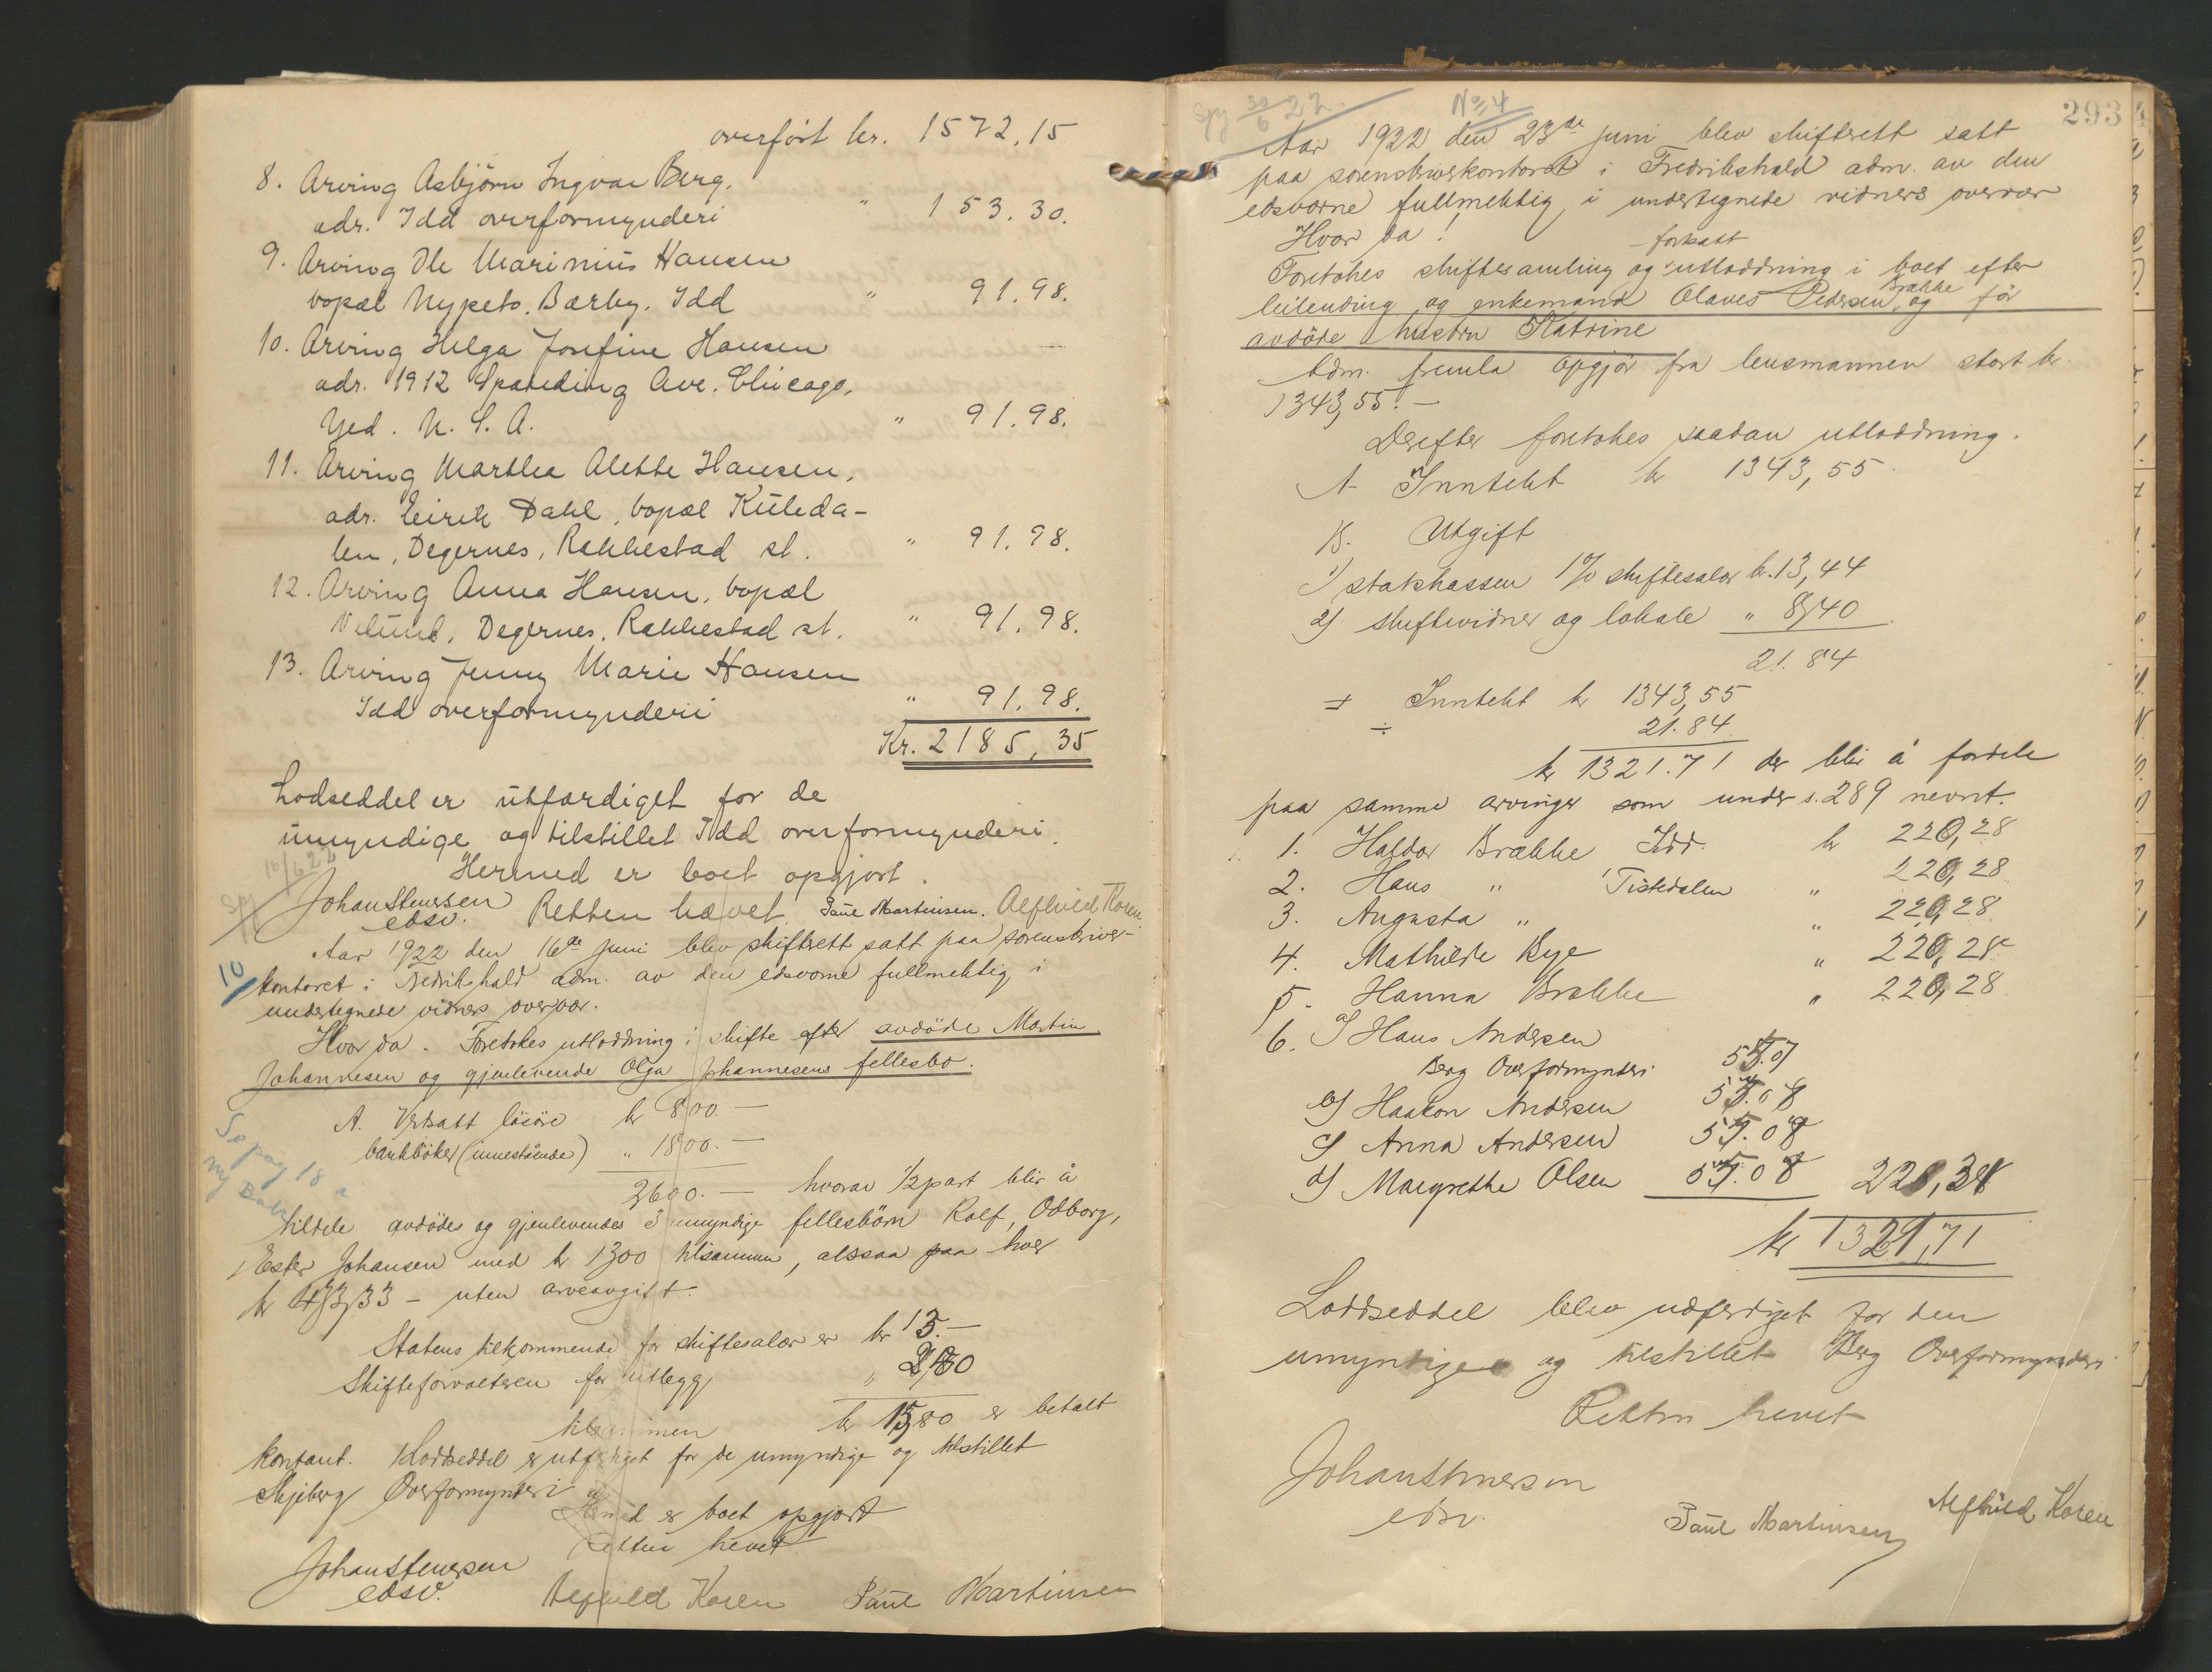 overført kr. 1572.15
8. Arving Asbjörn Ingvar Berg,
adr. Idd overformynderi " 153.30.
9. Arving Ole Marinius Hansen
bopæl Nypeto. Bærby. Idd " 91.98.
10. Arving Helga Josefine Hansen
adr. 1912 Spaulding Ave. Chicago,
U. S. A. " 91.98.
11. Arving Marthea Alette Hansen,
adr. Eirik Dahl, bopæl Kuleda-
len, Degernes, Rakkestad st. " 91.98.
12. Arving Anna Hansen, bopæl
Degernes, Rakkestad st. " 91.98.
13. Arving Jenny Marie Hansen
Idd overformynderi " 91.98.
Kr. 2185,35
Lodseddel er utfærdiget for de
umyndige og tilstillet Idd overformynderi.
10/6 22
Hermed er boet opgjort.
Johan Stenersen
edsv. Retten hævet. Paul Martinsen. Alfhild Koren
Aar 1922 den 16de juni blev skifterett satt paa sorenskriver-
10
kontoret i Fredrikshald adm. av den edsvorne fullmektig i
undertegnede vidners overvær.
Hvor da. Foretokes utloddning i skifte efter avdöde Martin
Johannesen og gjenlevende Olga Johannesens fellesbo.
A. Verksatt lösöre kr 800.—
bankböker (innestående) " 1800.—
2600.— hvorav 1/2 part blir å
tildele avdödes og gjenlevendes 3 umyndige fellesbörn Rolf, Odborg,
Ester Johansen med kr 1300 tilsammen, altsaa paa hver
kr 433,33 - uten arveavgift.
Statens tilkommende for skiftesalær er kr 13.—
Skifteforvalteren for utlegg " 2,80
tilsammen kr 15,80 er betalt
kontant. Loddseddel er utferdiget for de umyndige og tilstillet
Skjeberg Overformynderi
Hermed er boet opgjort
Retten hevet.
Johan Stenersen
edsv. Alfhild Koren Paul Martinsen
293
30/6 22. No 4
Aar 1922 den 23de juni blev skifterett satt
paa sorenskriverkontoret i Fredrikshald adm. av den
edsvorne fullmektig i undertegnede vidners overvær
Hvor da!
Foretokes skiftesamling og utloddning i boet efter
leilending og enkemand Olaves Pedersen Brække og för
avdöde hustru Katrine
Adm. fremla opgjör fra lensmannen stort kr.
1343,55.—
Derefter foretokes saadan utloddning.
A. Inntekt kr 1343,55.
B. Utgift
1) statskassen 1% skiftesalær kr. 13,44
2) skiftevidner og lokale " 8,40
21.84
Inntekt kr 1343,55
÷ 21.84
kr 1321.71 der blir å fordele
paa samme arvinger som under s. 289 nevnt.
1. Haldor Brække Idd. kr 220,28
2. Hans " Tistedalen " 220,28
3. Augusta " " 220,28
4. Mathilde Bye " 220,28
5. Hanna Brække " 220,28
6. a) Hans Andersen
Berg Overformynderi 55.07
b) Haakon Andersen 55.08
c) Anna Andersen 55.08
d) Margrethe Olsen 55.08 220,31
kr 1321,71
Loddseddel blev udferdiget for den
umyndige og tilstillet Berg Overformynderi
Retten hevet
Johan Stenersen
edsv.
Paul Martinsen Alfhild Koren